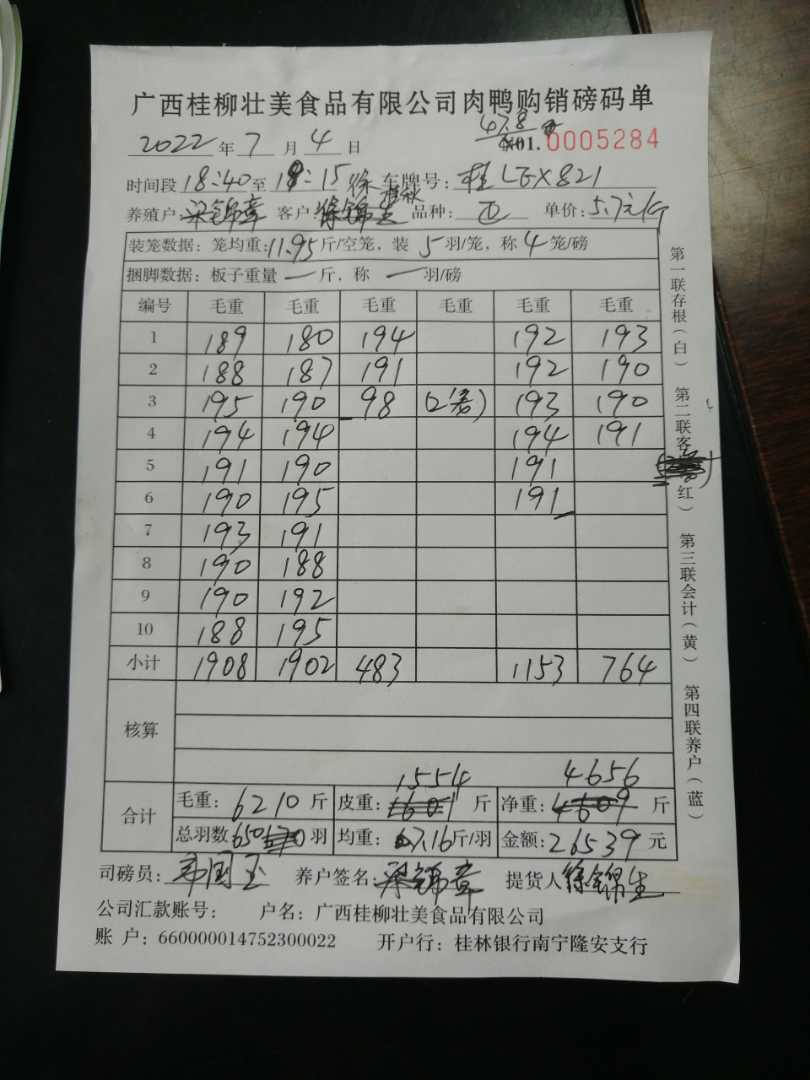 广西桂柳壮美食品有限公司肉鸭购销磅码单
2022年7月4日 47.8 №01.0005284
时间段18:40至19:15 车牌号:桂LGX821
养殖户:梁锦章 客户:徐锦生 品种: 单价:5.7元/
装笼数据:笼均重:11.95斤/空笼,装5羽/笼,称4笼/磅
捆脚数据:板子重量一斤,称一羽/磅
编号 毛重 毛重 毛重 毛重 毛重 毛重
1 189 180 194 192 193
2 188 187 191 192 190
3 195 190 98 (2笼) 193 190
4 194 194 194 191
5 191 190 191
6 190 195 191
7 193 191
8 190 188
9 190 192
10 188 195
小计 1908 1902 483 1153 764
核算
1554 4656
合计 毛重:6210斤 皮重:斤 净重:4609斤
总羽数650羽 均重:7.16斤/羽 金额:26539元
司磅员:韦国玉 养户签名:梁锦章 提货人徐锦生
公司汇款账号: 户名:广西桂柳壮美食品有限公司
账 户:660000014752300022 开户行:桂林银行南宁隆安支行
第一联存根(白) 第二联客(红) 第三联会计(黄) 第四联养户(蓝)